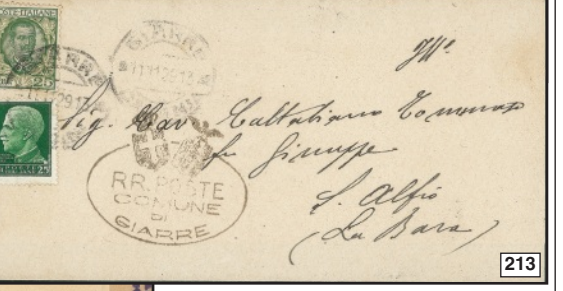 POSTE ITALIANE
25
GIARRE
Ill.
Sig. Cav Caltabiano Tommaso
fu Giuseppe
S. Alfio
(La Bara)
25
RR. POSTE
COMUNE
DI
GIARRE
213